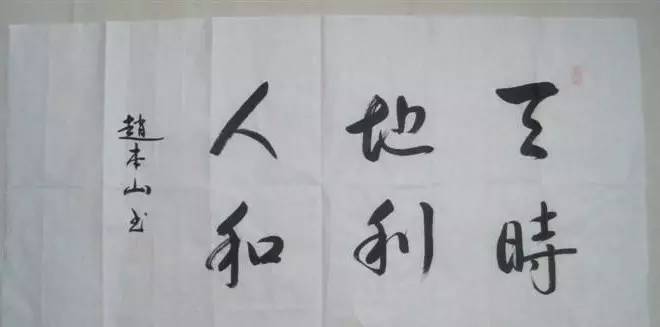 天時
地利
人和
趙本山书